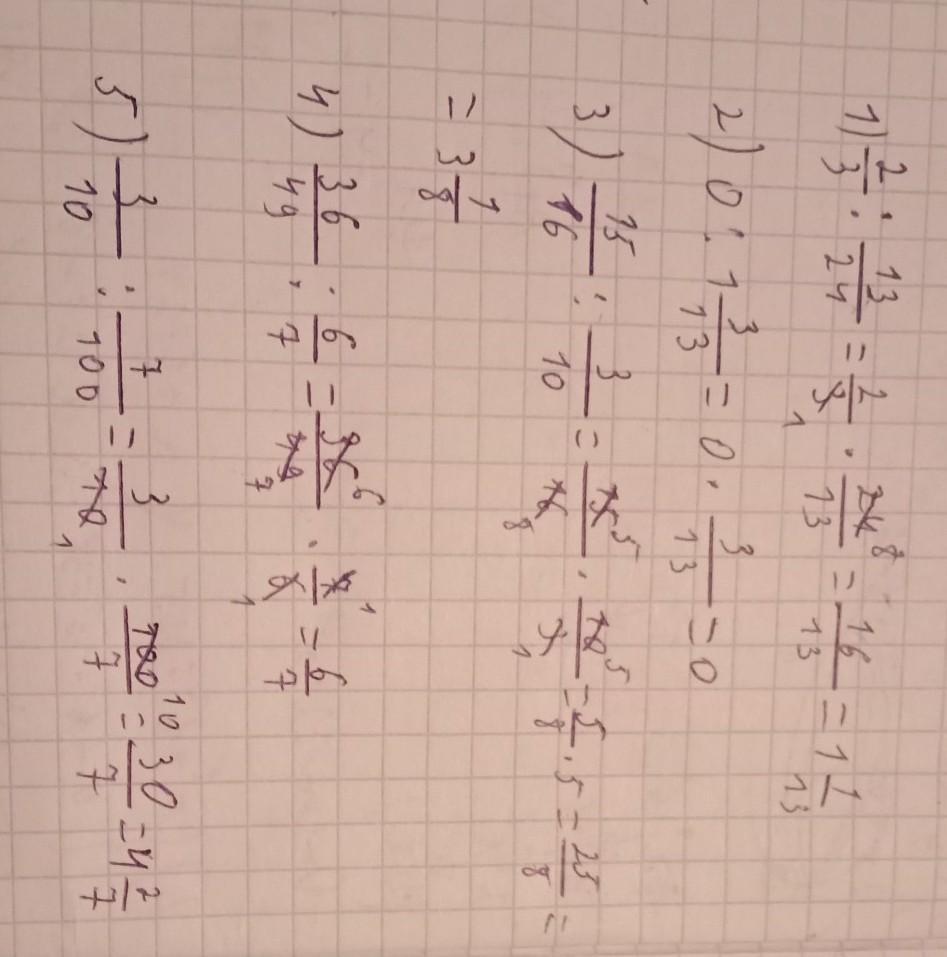 1) 2/3 : 13/24 = 2/3₁ · 24⁸/13 = 16/13 = 1 1/13
2) 0 : 1 3/13 = 0 · 3/13 = 0
3) 15/16 : 3/10 = 15⁵/16₈ · 10⁵/3₁ = 5/8 · 5 = 25/8 =
= 3 1/8
4) 36/49 : 6/7 = 36⁶/49₇ · 7¹/6₁ = 6/7
5) 3/10 : 7/100 = 3/10₁ · 100¹⁰/7 = 30/7 = 4 2/7